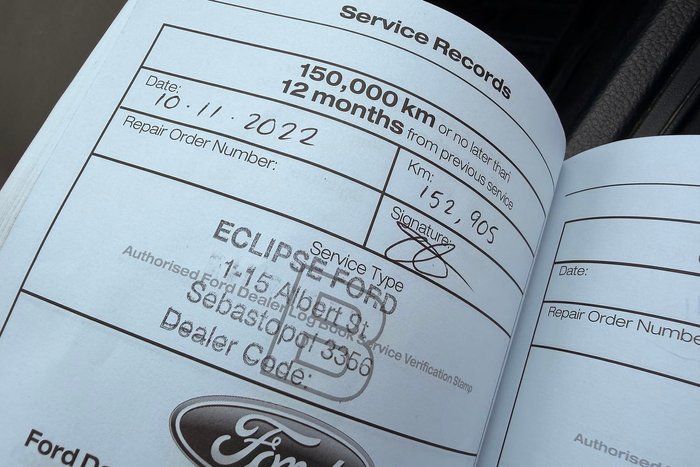 Service Records
150,000 km or no later than
12 months from previous service
Date:
10.11.2022
Km:
152,905
Repair Order Number:
Signature:
Service Type
B
ECLIPSE FORD
1-15 Albert St,
Authorised Ford Dealer Log Book Service Verification Stamp
Sebastopol 3356
Dealer Code:
Ford
Ford De
Date:
Repair Order Numbe
Authorised